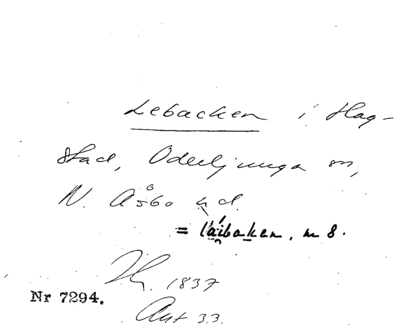 Lebacken i Hag-
stad, Oderljunga sn,
N. Åsbo hd.
= láibaken, m 8.
1837
Nr 7294.
Ant 33.